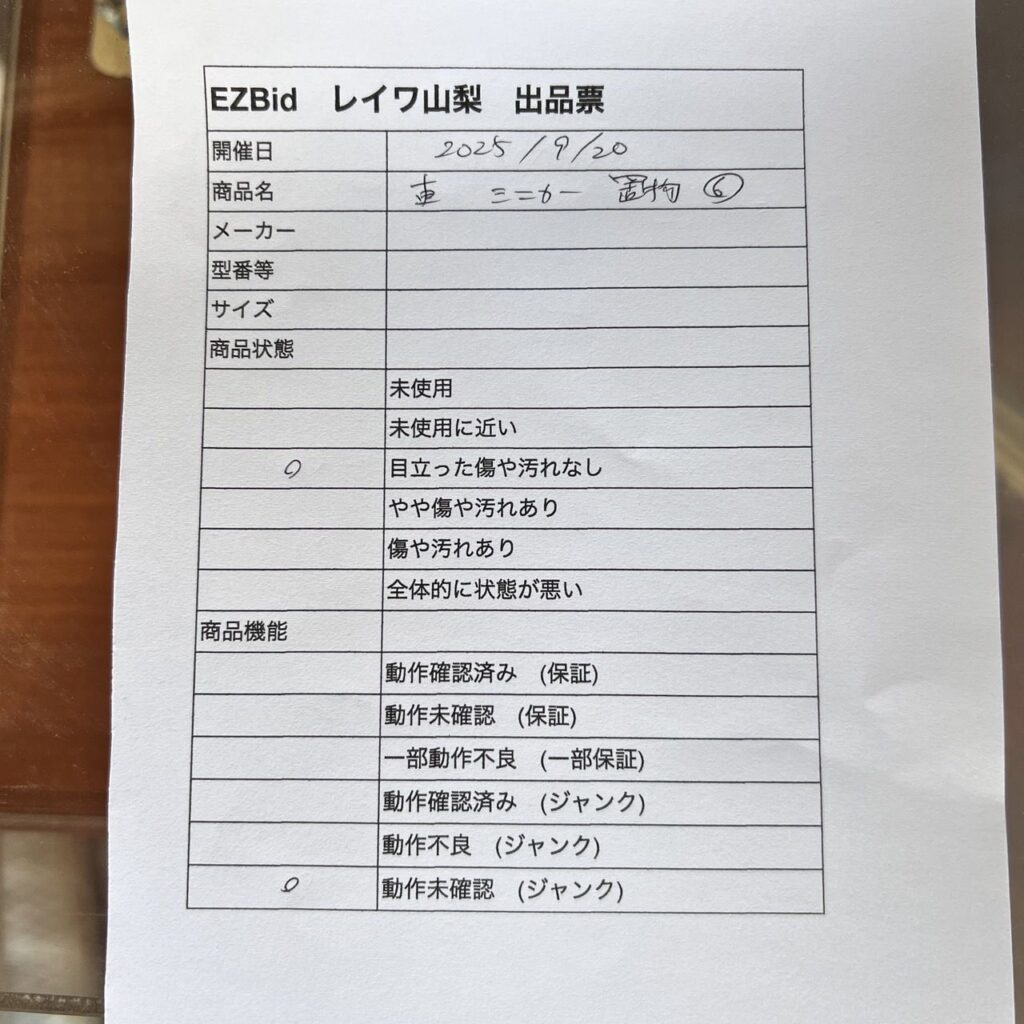 EZBid レイワ山梨 出品票
開催日 2025/9/20
商品名 車 ミニカー 置物 ⑥
メーカー
型番等
サイズ
商品状態
未使用
未使用に近い
○ 目立った傷や汚れなし
やや傷や汚れあり
傷や汚れあり
全体的に状態が悪い
商品機能
動作確認済み (保証)
動作未確認 (保証)
一部動作不良 (一部保証)
動作確認済み (ジャンク)
動作不良 (ジャンク)
○ 動作未確認 (ジャンク)